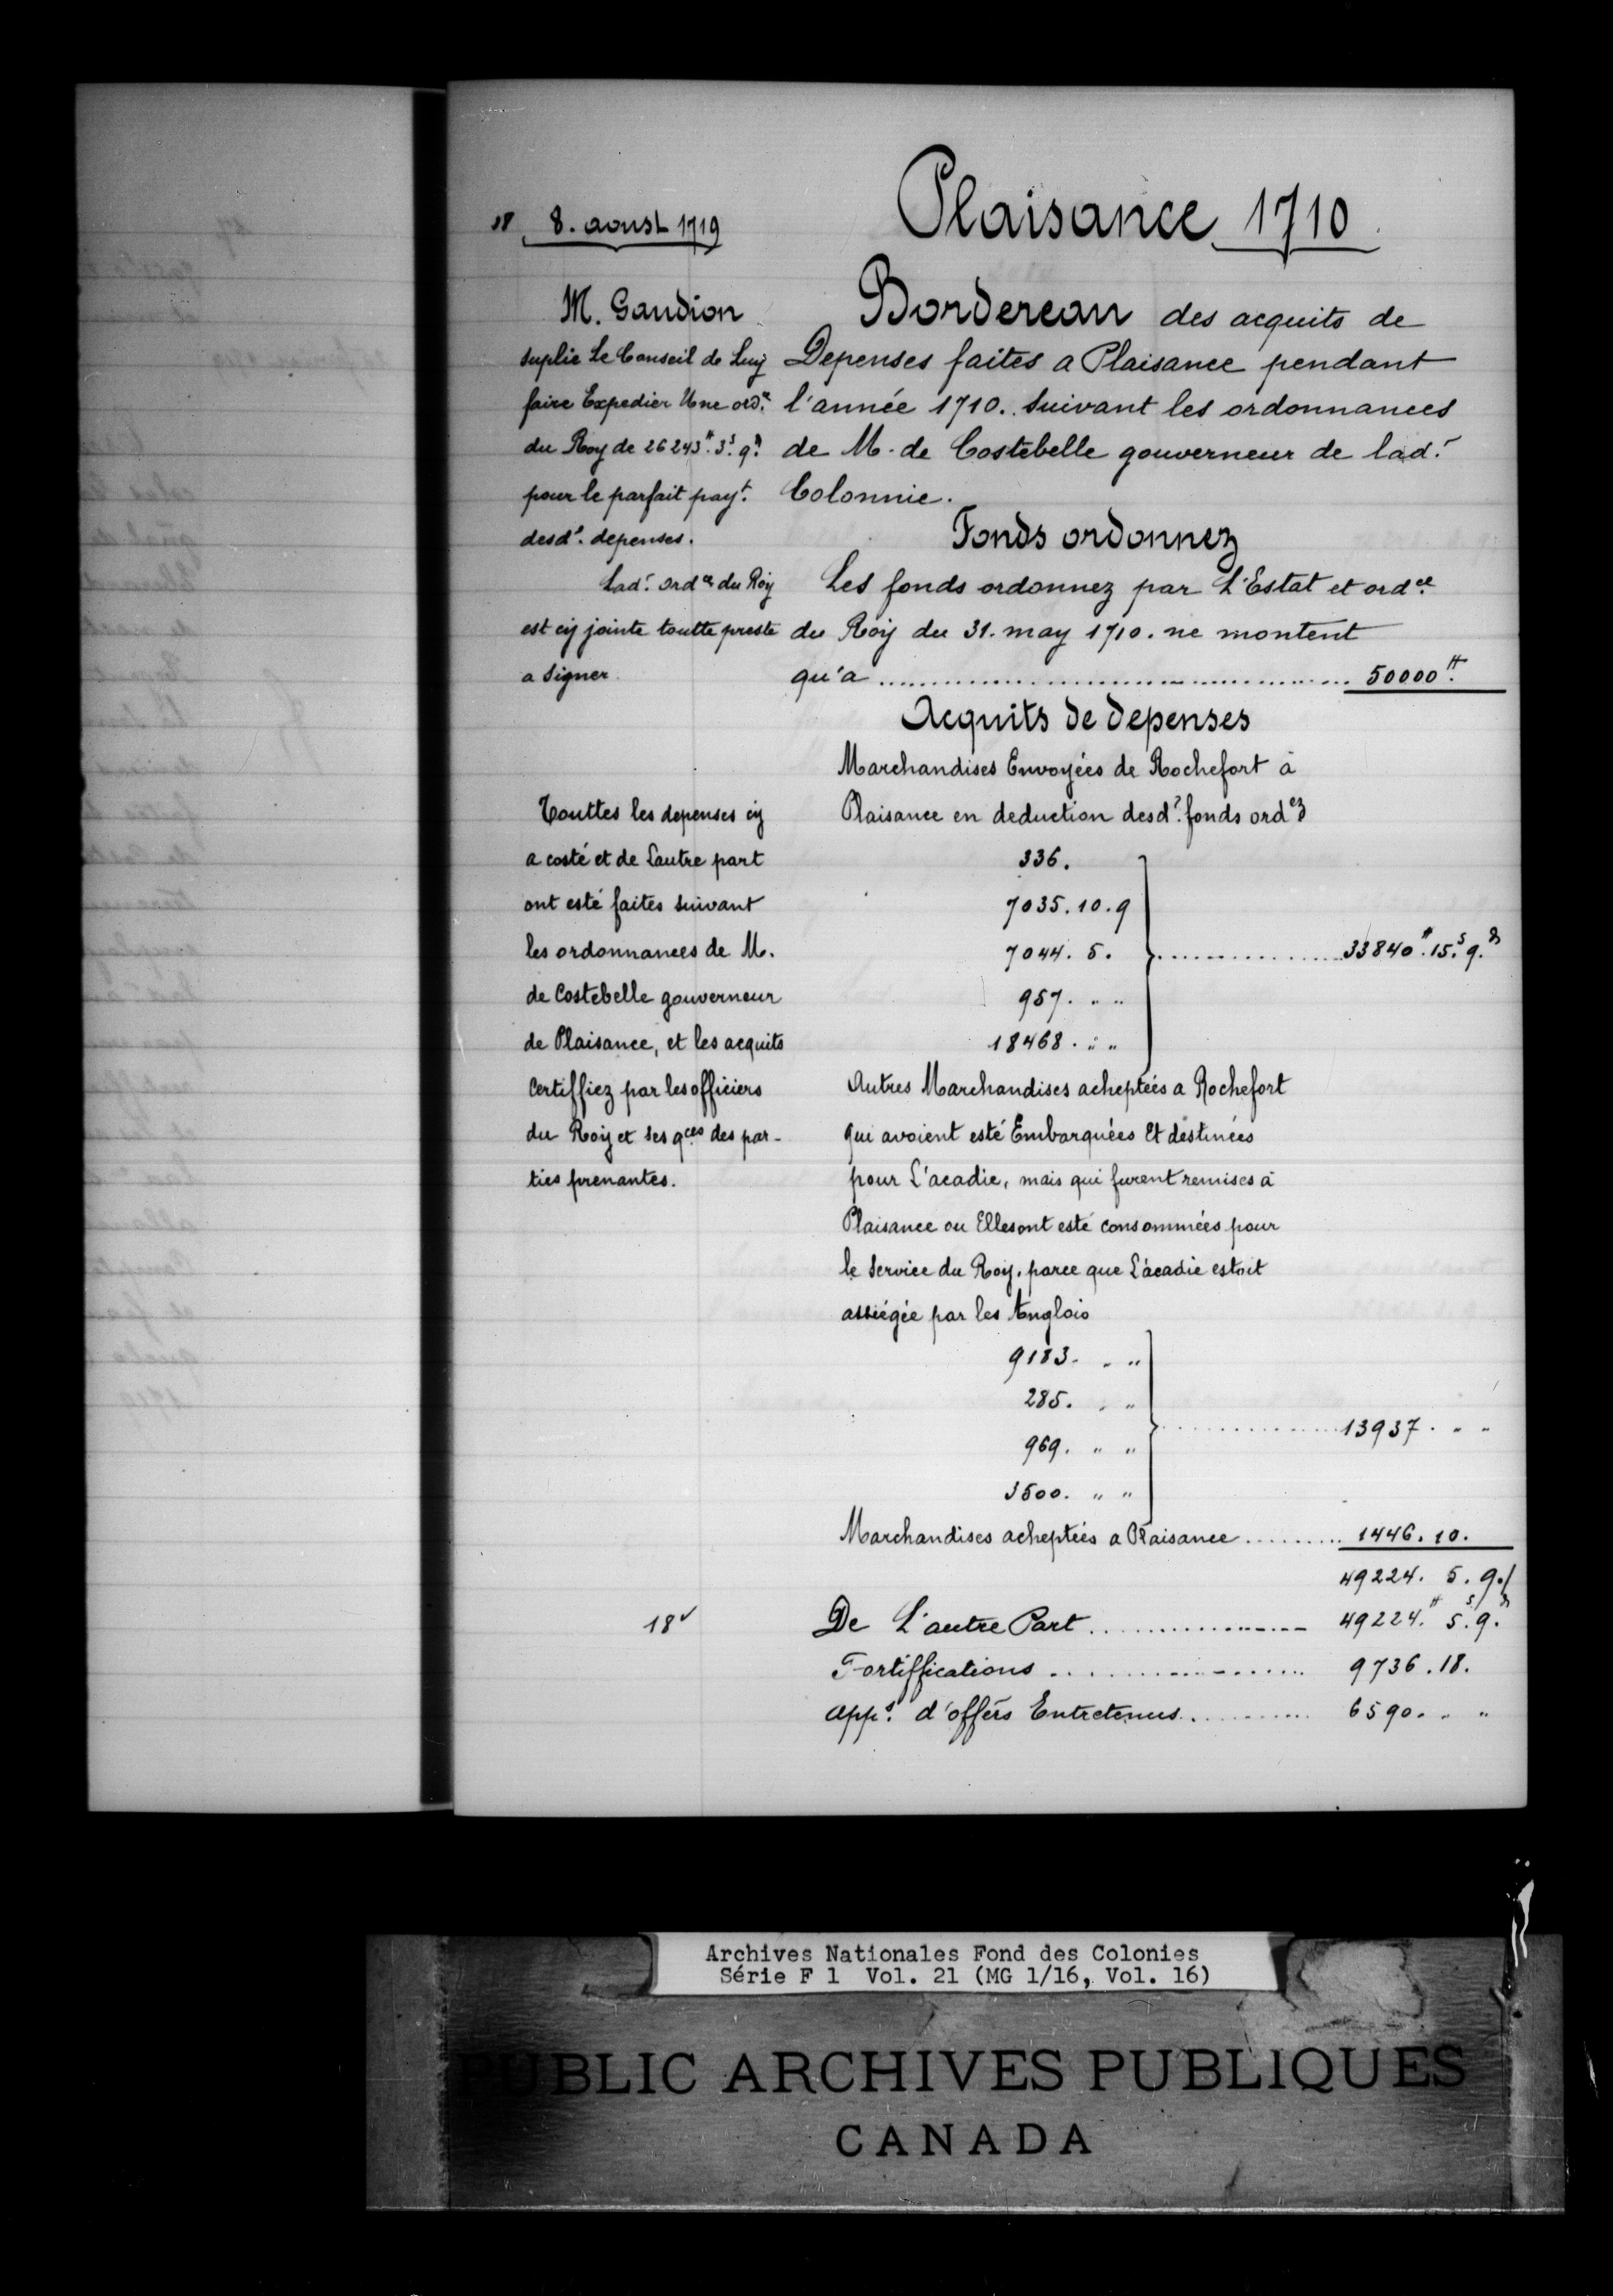 18 8. aoust 1719
Plaisance 1710
M. Gaudion
suplie Le Conseil de Luy
faire Expedier Une ord.ce
du Roy de 26243.# 3.s 9.d
pour le parfait pay.t
desd.s depenses.
Lad.e ord.ce du Roy
est cy jointe toutte preste
a signer.
Touttes les depenses cy
a costé et de Lautre part
ont esté faites suivant
les ordonnances de M.
de Costebelle gouverneur
de Plaisance, et les acquits
Certiffiez par les officiers
du Roy et ses q.ces des par-
ties prenantes.
Bordereau des acquits de
Depenses faites a Plaisance pendant
l'année 1710. suivant les ordonnances
de M. de Costebelle gouverneur de lad.e
Colonnie.
Fonds ordonnez
Les fonds ordonnez par L'Estat et ord.ce
du Roy du 31. may 1710. ne montent
qu'a .......... 50000.#
Acquits de depenses
Marchandises Envoyées de Rochefort à
Plaisance en deduction desd.s fonds ord.ez
336.
7035. 10. 9
7044. 5. .......... 33840.# 15.s 9.d
957. " "
18468. " "
Autres Marchandises acheptées a Rochefort
qui avoient esté Embarquées Et destinées
pour L'acadie, mais qui furent remises à
Plaisance ou Elles ont esté consommées pour
le Service du Roy, parce que L'acadie estoit
assiégée par les Anglois
9183. " "
285. " "
.......... 13937. " "
969. " "
3500. " "
Marchandises acheptées a Plaisance ......... 1446. 10.
49224. 5. 9./
18v De L'autre Part .......... 49224.# 5.s 9.d
Fortiffications .......... 9736. 18.
App.s d'offers Entretenus .......... 6590. " "
Archives Nationales Fond des Colonies
Série F 1 Vol. 21 (MG 1/16, Vol. 16)
PUBLIC ARCHIVES PUBLIQUES
CANADA